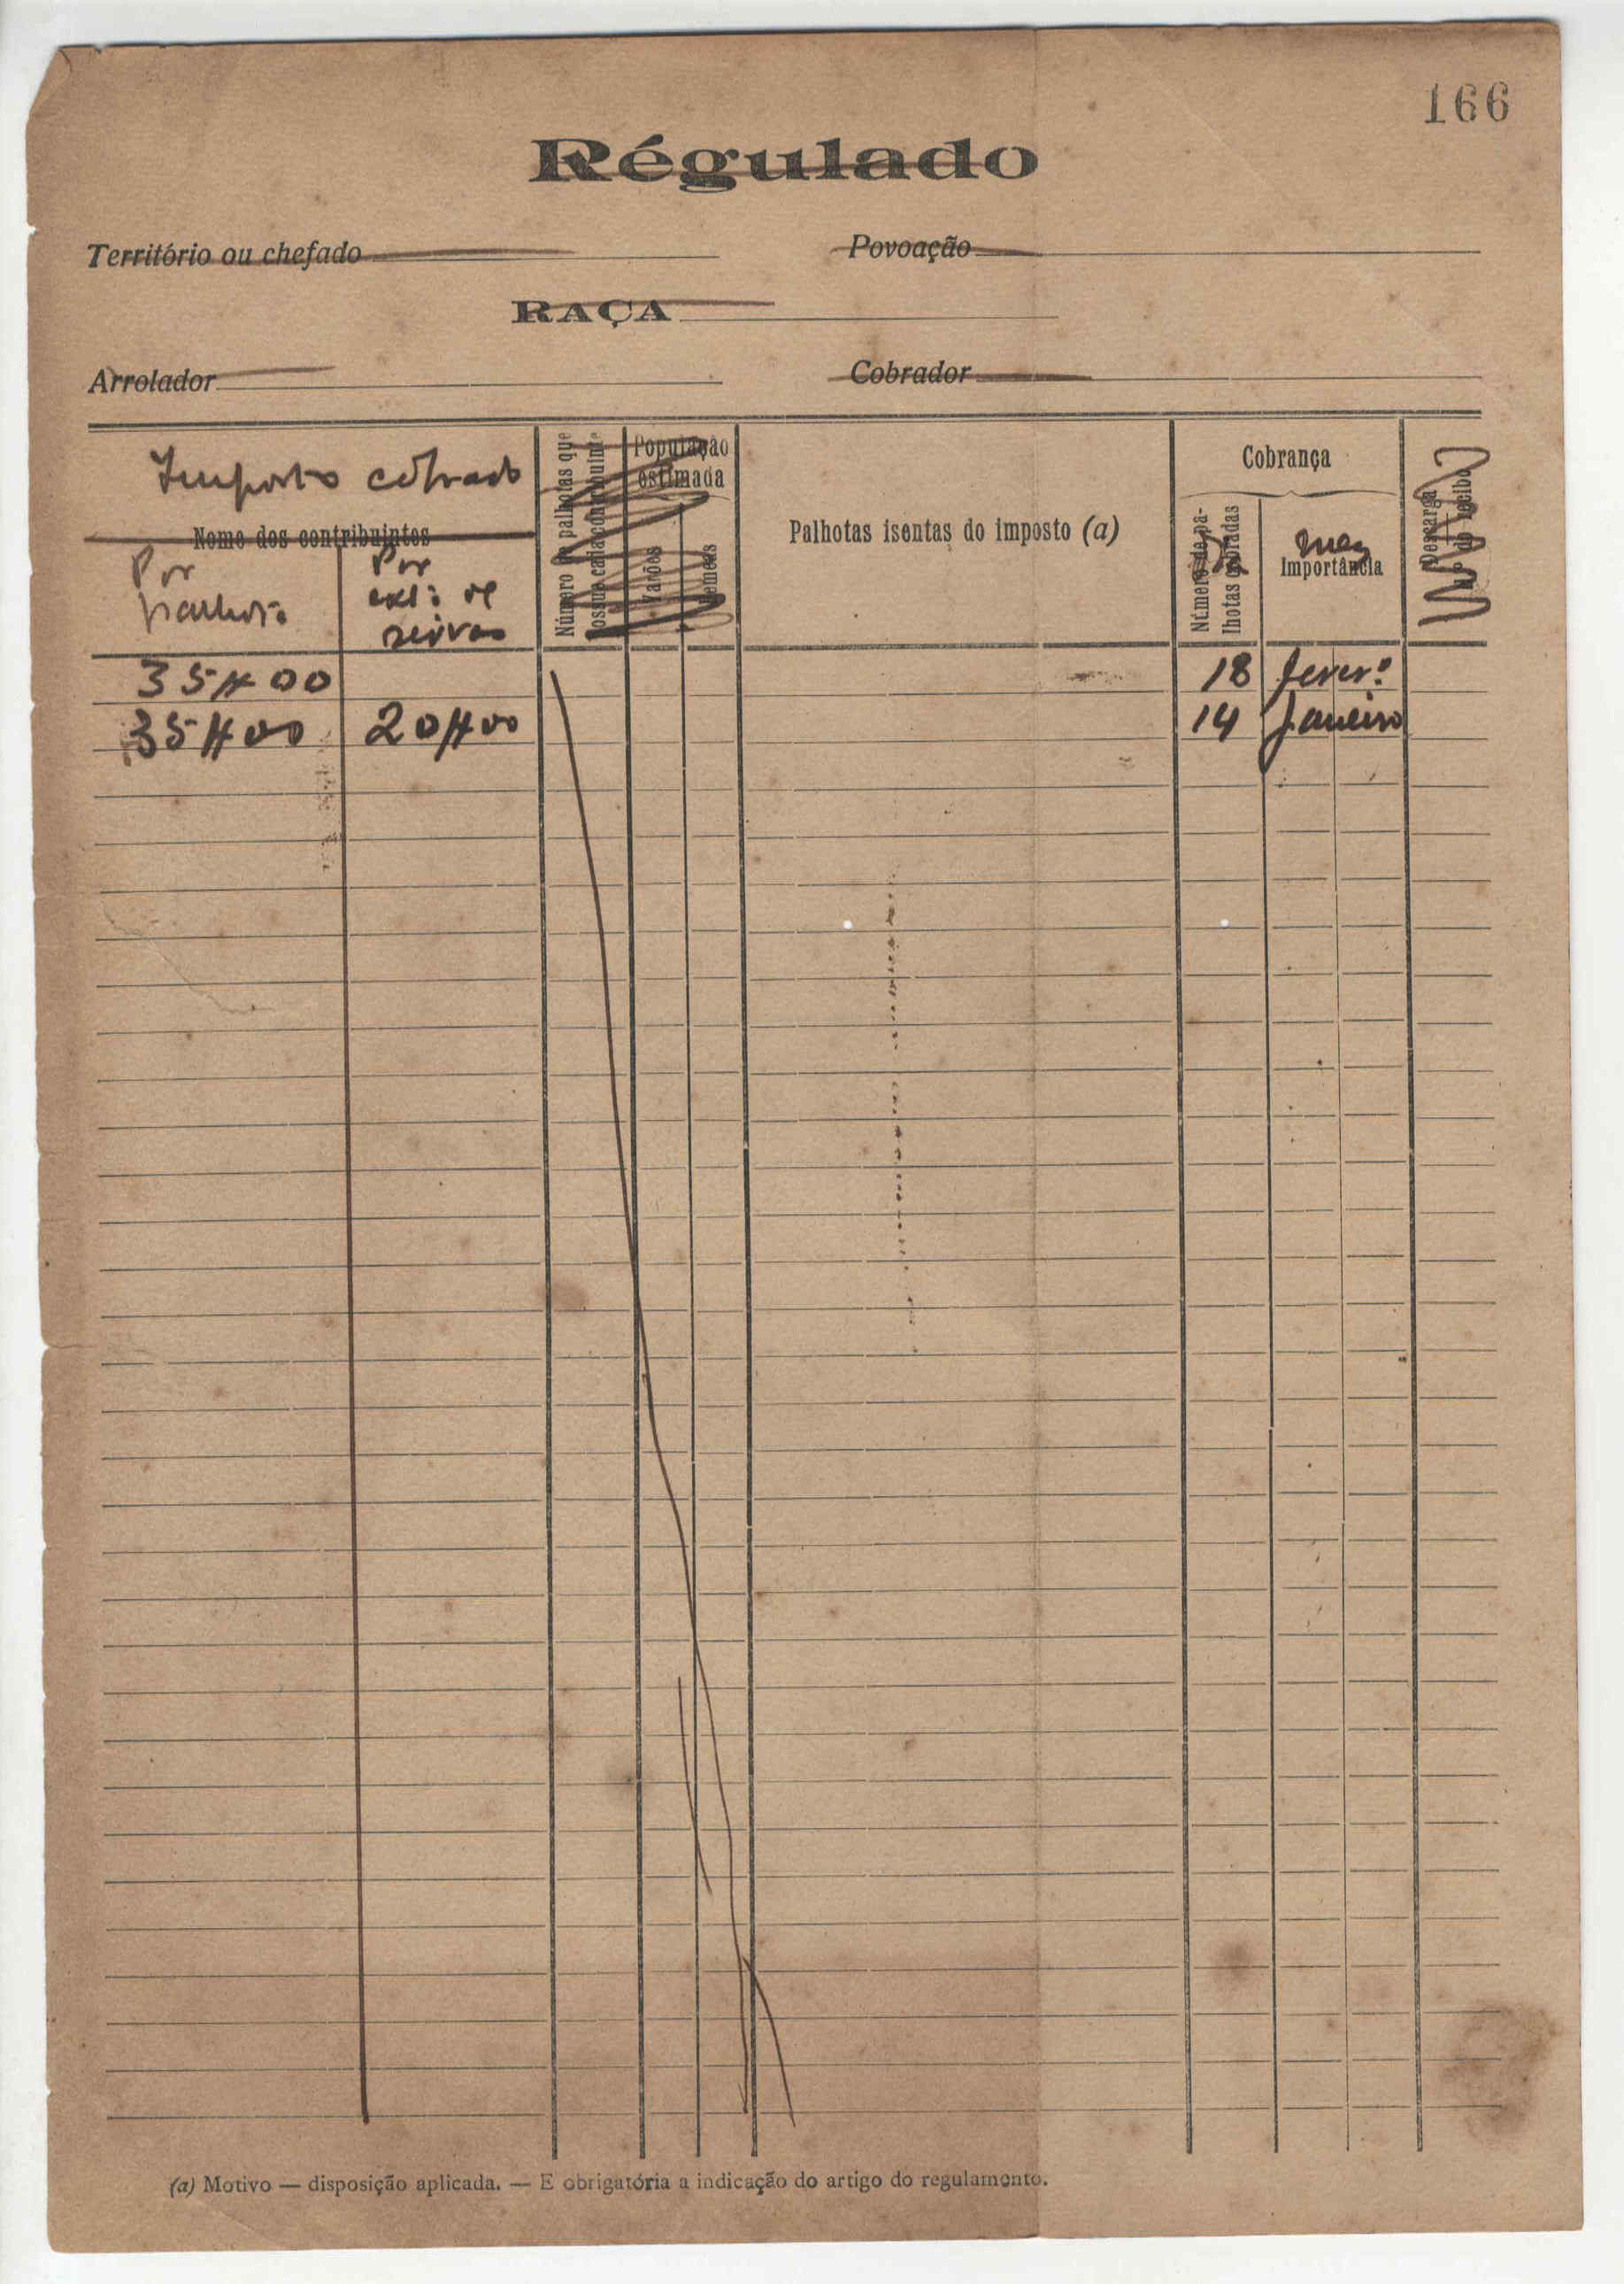 166
Régulado
Território ou chefado Povoação
RAÇA
Arrolador Cobrador
Imposto cobrado
Nome dos contribuintes
Por palhota
Por ext. de
Número de palhotas que possue cada contribuinte
População estimada
Varões
Femeas
Palhotas isentas do imposto (a)
Cobrança
Número de palhotas cobradas
Mez
Importância
Descarga
N.º do recibo
35$00 18 Fever.º
35$00 20$00 14 Janeiro
(a) Motivo — disposição aplicada. — E obrigatória a indicação do artigo do regulamento.